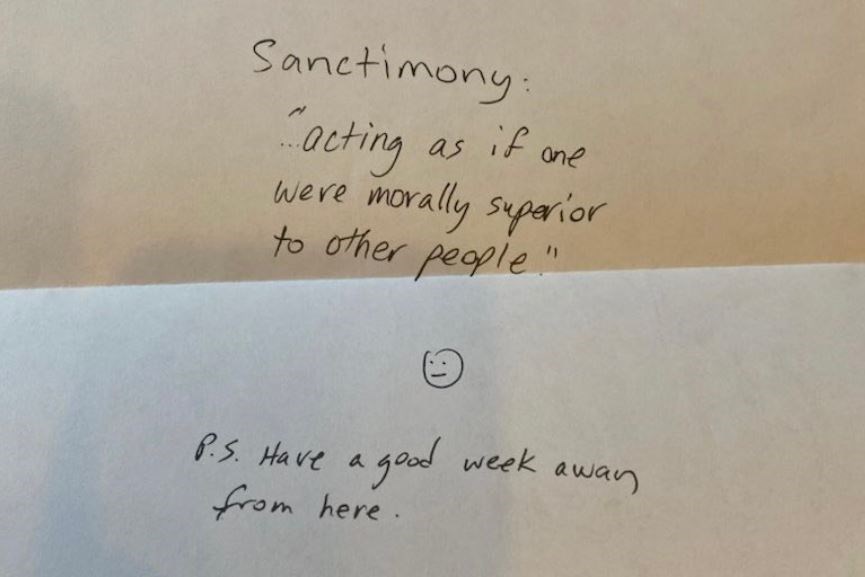 Sanctimony:
"...acting as if one
were morally superior
to other people."
P.S. Have a good week away
from here.